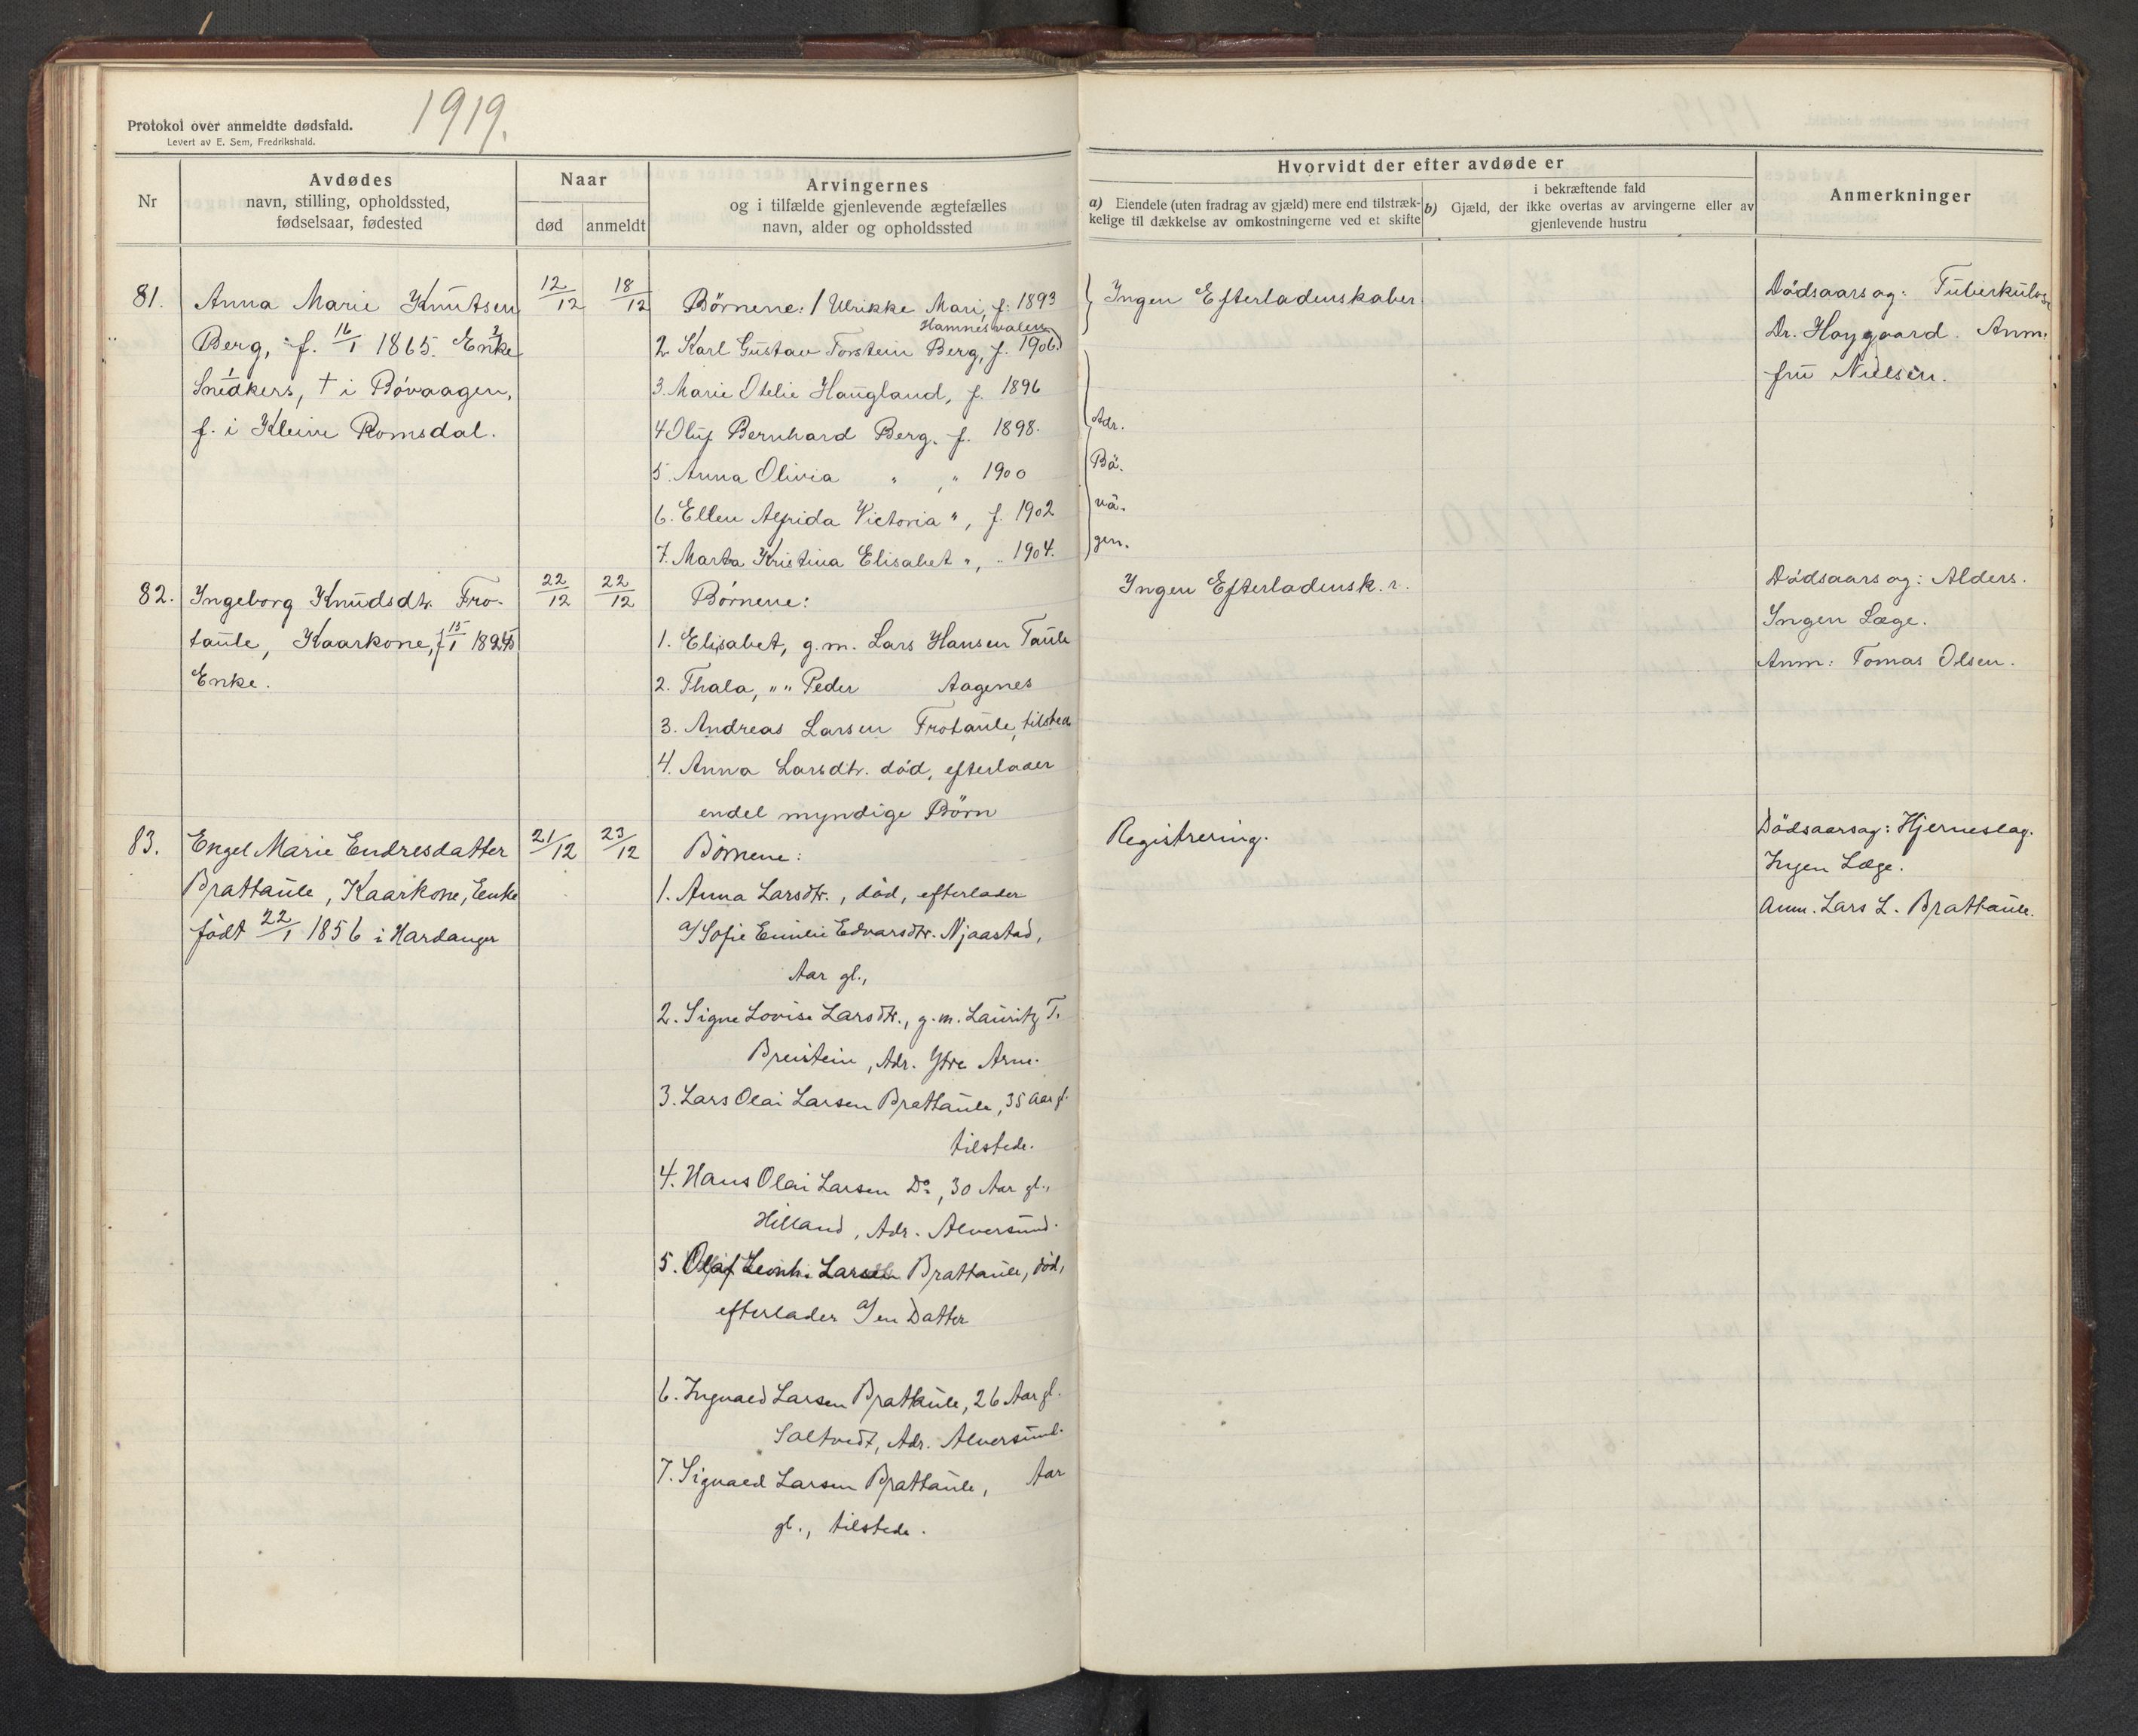 1919.
Protokol over anmeldte dødsfald.
Levert av E. Sem, Fredrikshald.
Nr
Avdødes
navn, stilling, opholdssted,
fødselsaar, fødested
Naar
død
anmeldt
Arvingernes
og i tilfælde gjenlevende ægtefælles
navn, alder og opholdssted
Hvorvidt der efter avdøde er
a) Eiendele (uten fradrag av gjæld) mere end tilstræk-
kelige til dækkelse av omkostningerne ved et skifte
i bekræftende fald
b) Gjæld, der ikke overtas av arvingerne eller av
gjenlevende hustru
Anmerkninger
81.
Anna Marie Knutsen
Berg, f. 16/1 1865. Enke
Snedkers, † i Bövaagen,
f. i Kleive Romsdal.
12/12
18/12
Börnene: 1 Ulrikke Mari, f. 1893
Hamnesvalen
2. Karl Gustav Torstein Berg, f. 1906)
3. Marie Otelie Haugland, f. 1896
4 Oluf Bernhard Berg. f. 1898.
5. Anna Olivia " , " 1900
6. Ellen Alfrida Victoria ", f. 1902
7. Marta Kristina Elisabet ", .. 1904.
Adr.
Bö.
vå.
gen.
Ingen Efterladenskaber
Dödsaarsag: Tuberkulose
Dr. Høygaard. Anm.
fru Nielsen.
82.
Ingeborg Knudsdtr. Fro-
taule, Kaarkone, f 15/1
Enke.
22/12
22/12
Börnene:
1. Elisabet, g.m. Lars Hansen Taule
2. Thala, " " Peder Aagenes
3. Andreas Larsen Frotaule, tilstede
4. Anna Larsdtr. död, efterlader
endel myndige Börn
Ingen Efterladensk.r.
Dödsaarsag: Alders.
Ingen Læge.
Anm: Tomas Olsen.
83.
Engel Marie Endresdatter
Brattaule, Kaarkone, Enke
födt 22/1 1856 i Hardanger
21/12
23/12
Börnene:
1. Anna Larsdtr., död, efterlader
a/ Sofie Emilie Edvarsdtr. Njaastad,
Aar gl.,
2. Signe Lovise Larsdtr., g.m. Lauritz T.
Breistein, Adr. Ytre Arne.
3. Lars Olai Larsen Brattaule, 35 Aar gl.
tilstede.
4. Hans Olai Larsen Do, 30 Aar gl.,
Hilland, Adr. Alversund.
5. Olaf Leonh. Larsen Brattaule, död,
efterlader a/ en Datter
6. Ingvald Larsen Brattaule, 26 Aar gl.
Saltvedt, Adr. Alversund.
7. Sigvald Larsen Brattaule, Aar
gl., tilstede.
Registrering.
Dödsaarsag: Hjerneslag.
Ingen Læge.
Anm. Lars L. Brattaule.